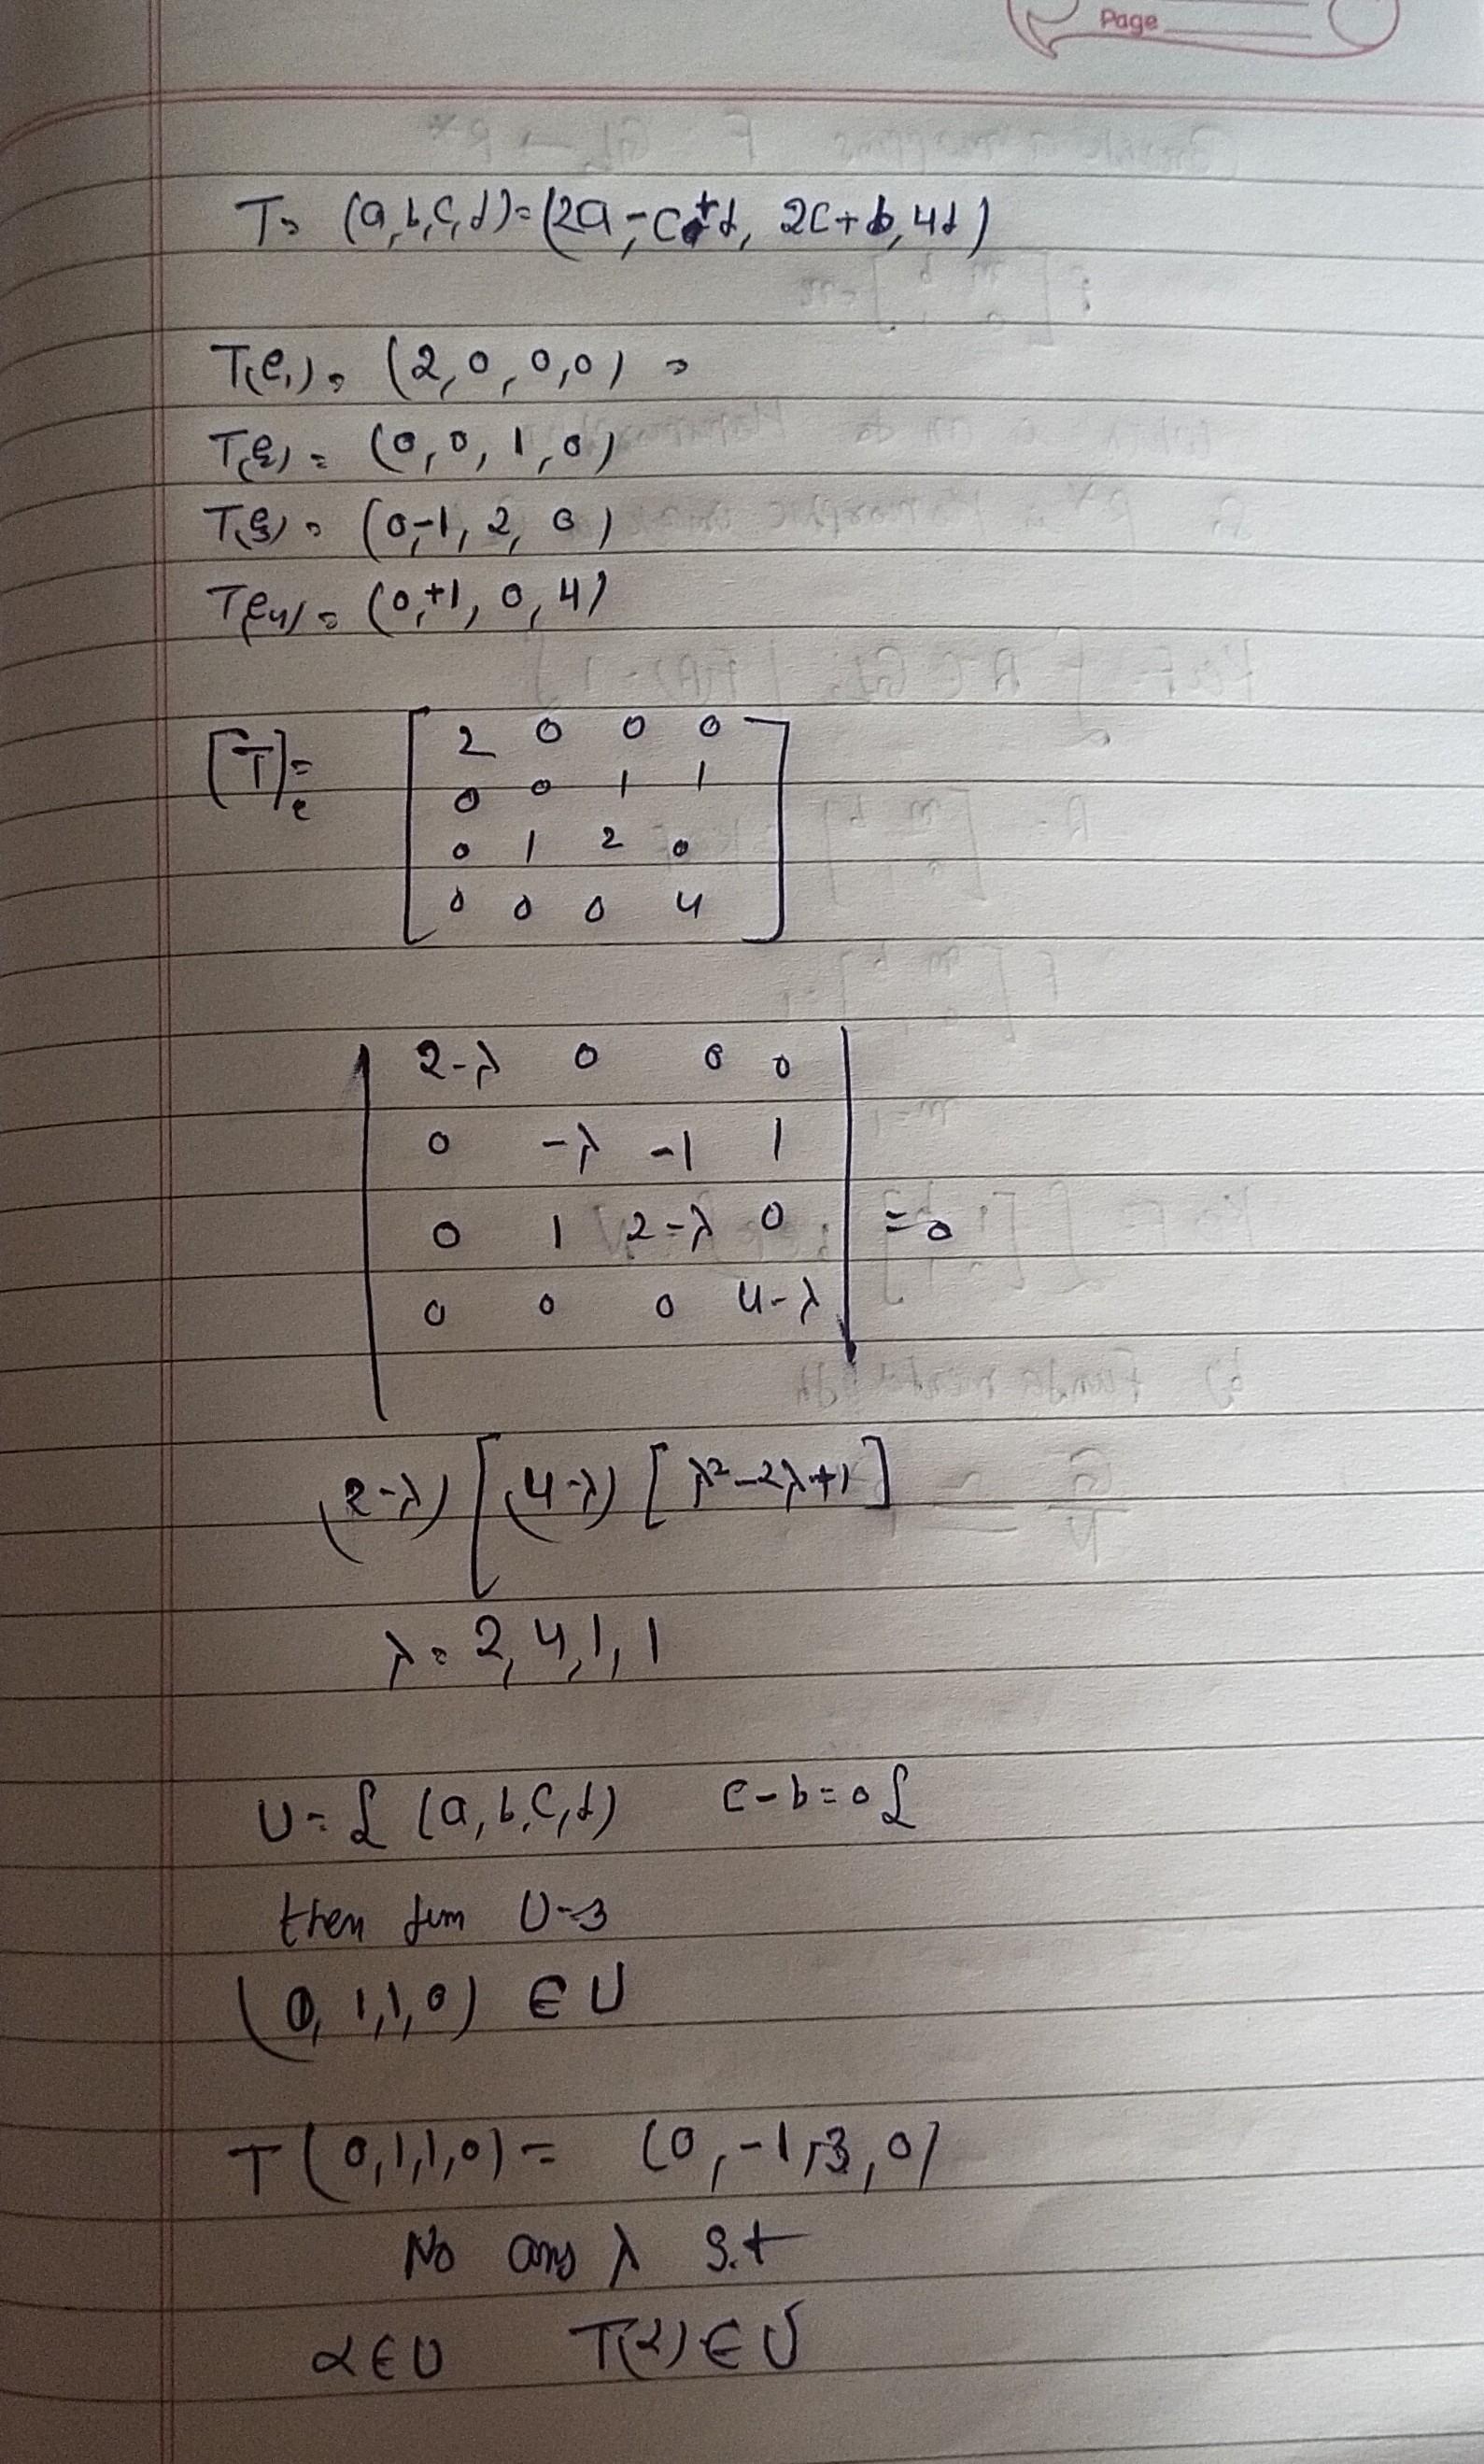 Page
T= (a,b,c,d)=(2a,-c+d, 2c+b,4d)
T(e₁)= (2,0,0,0) =
T(e₂)= (0,0,1,0)
T(e₃)= (0,-1,2,0)
T(e₄)= (0,+1,0,4)
[T]ₑ=
2 0 0 0
0 0 1 1
0 1 2 0
0 0 0 4
2-λ 0 0 0
0 -λ -1 1
0 1 2-λ 0 =0
0 0 0 4-λ
(2-λ)[(4-λ)[λ²-2λ+1]
λ= 2,4,1,1
U={(a,b,c,d) c-b=0}
then dim U=3
(0,1,1,0) ∈ U
T(0,1,1,0)= (0,-1,3,0)
No any λ s.t
α∈U T(α)∈U